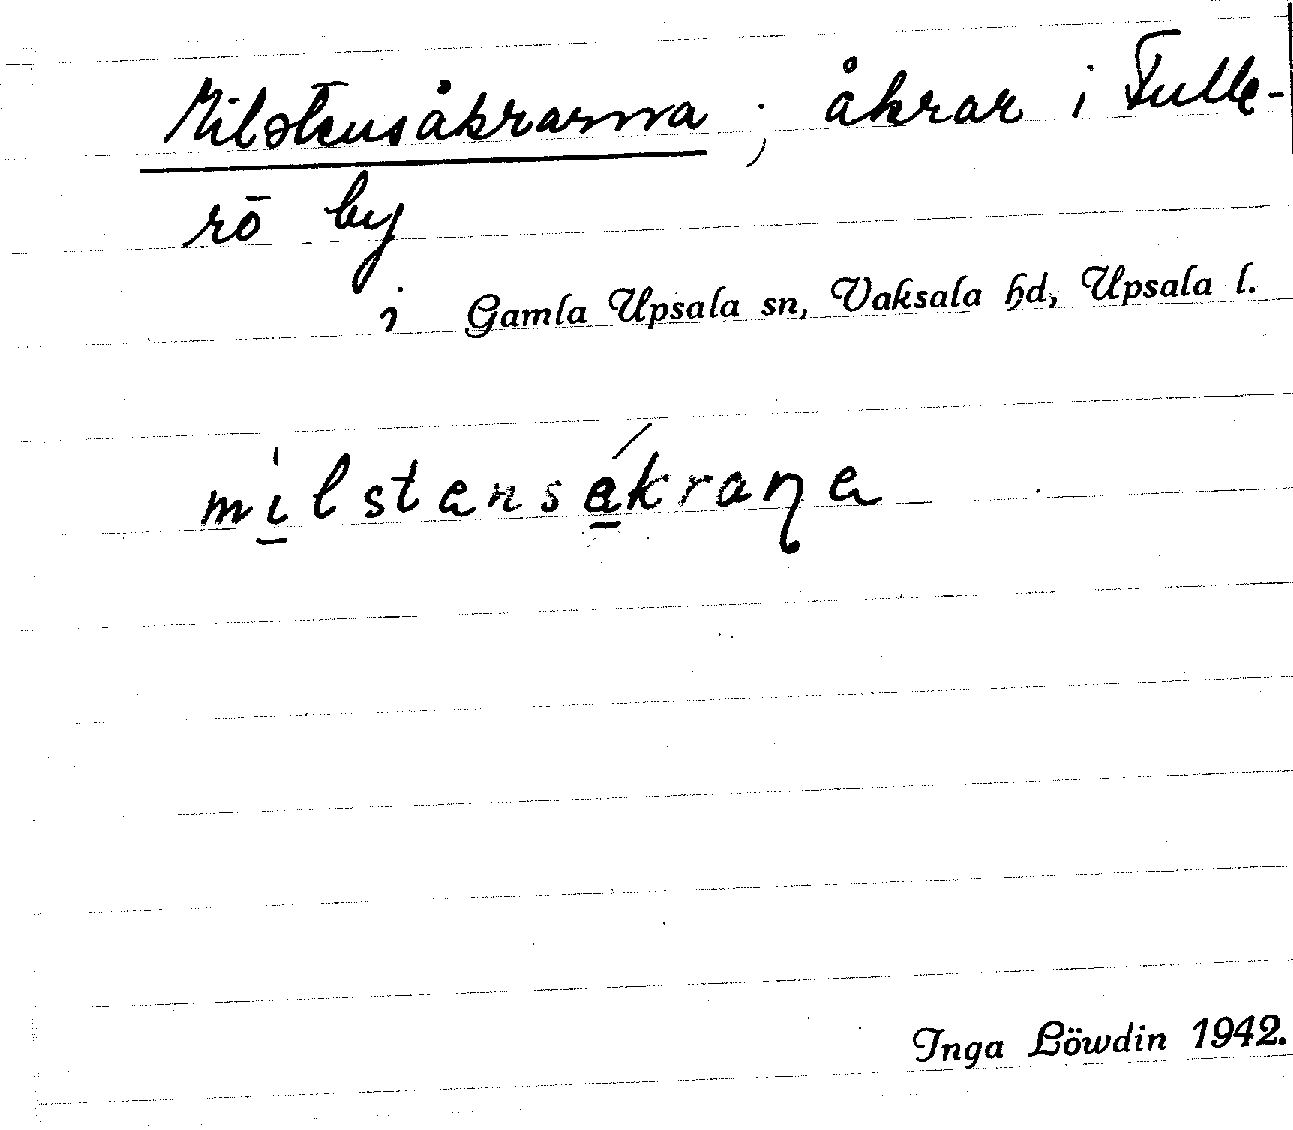 Milstensåkrarna; åkrar i Fulle-
rö by
i Gamla Upsala sn, Vaksala hd, Upsala l.
mi̲lstensa̲kraɳa
Inga Löwdin 1942.